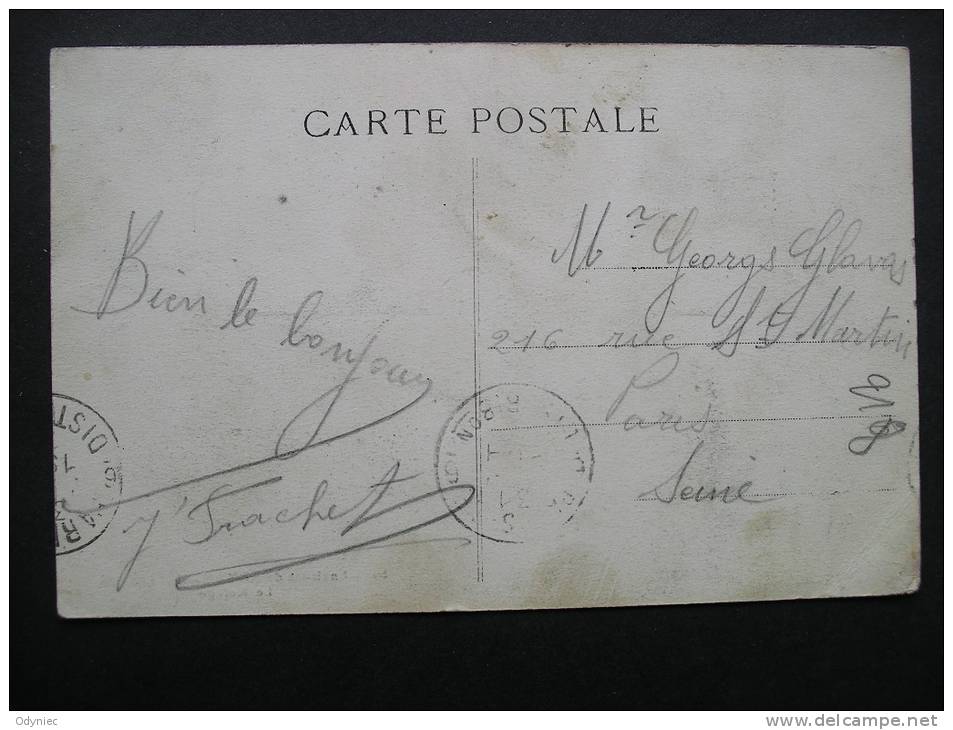 CARTE POSTALE
Bien le bonjour
Trachet
Mr Georgs Glavas
216 rue St Martin
Paris
Seine
DIST
Odyniec
www.delcampe.net